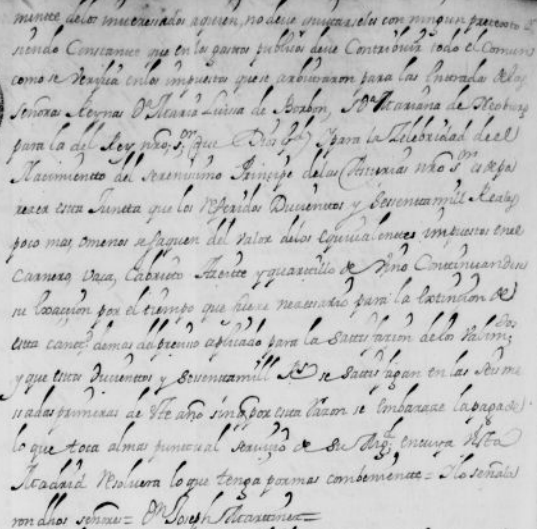 mente delos interesados aquien, no deve quitarselos con ningun pretexto
siendo Constante que en los gastos publicos deve Contribuir todo el Comun
como se Verifica enlos impuestos que se arbitraron para las Entradas delas
Señoras Reynas Dª Maria Luissa de Borbon, y Dª Mariana de Neoburg
para la del Rey nro. sr. (que Dios gde) y para la Zelebridad de el
Nacimientto del Serenissimo Principe delas Asturias nro sr. es de pa
rezer esta Juntta que los referidos Ducienttos y Sesenttamill Reales
poco mas, omenos se saquen del valor delos equivalenttes impuestos en el
Carnero, Vaca, Cabritto Azeitte y quartillo de Vino Conttinuandose
su exaccion por el tiempo que fuere necessario para la extincion de
esta cantd. demas del precio aplicado para la Sattisfacion delos Valimos
y que estos Ducienttos y Sesenttamill Rs. se sattisfagan en las seis me
sadas primeras de este año sin q. por esta razon se embaraze la paga de
lo que toca almas punctual servicio de Su Magd. en cuya vista
Madrid Resolvera lo que tenga por mas combenientte = Y lo señala
ron dhos señores = Dn Joseph Marttinez =